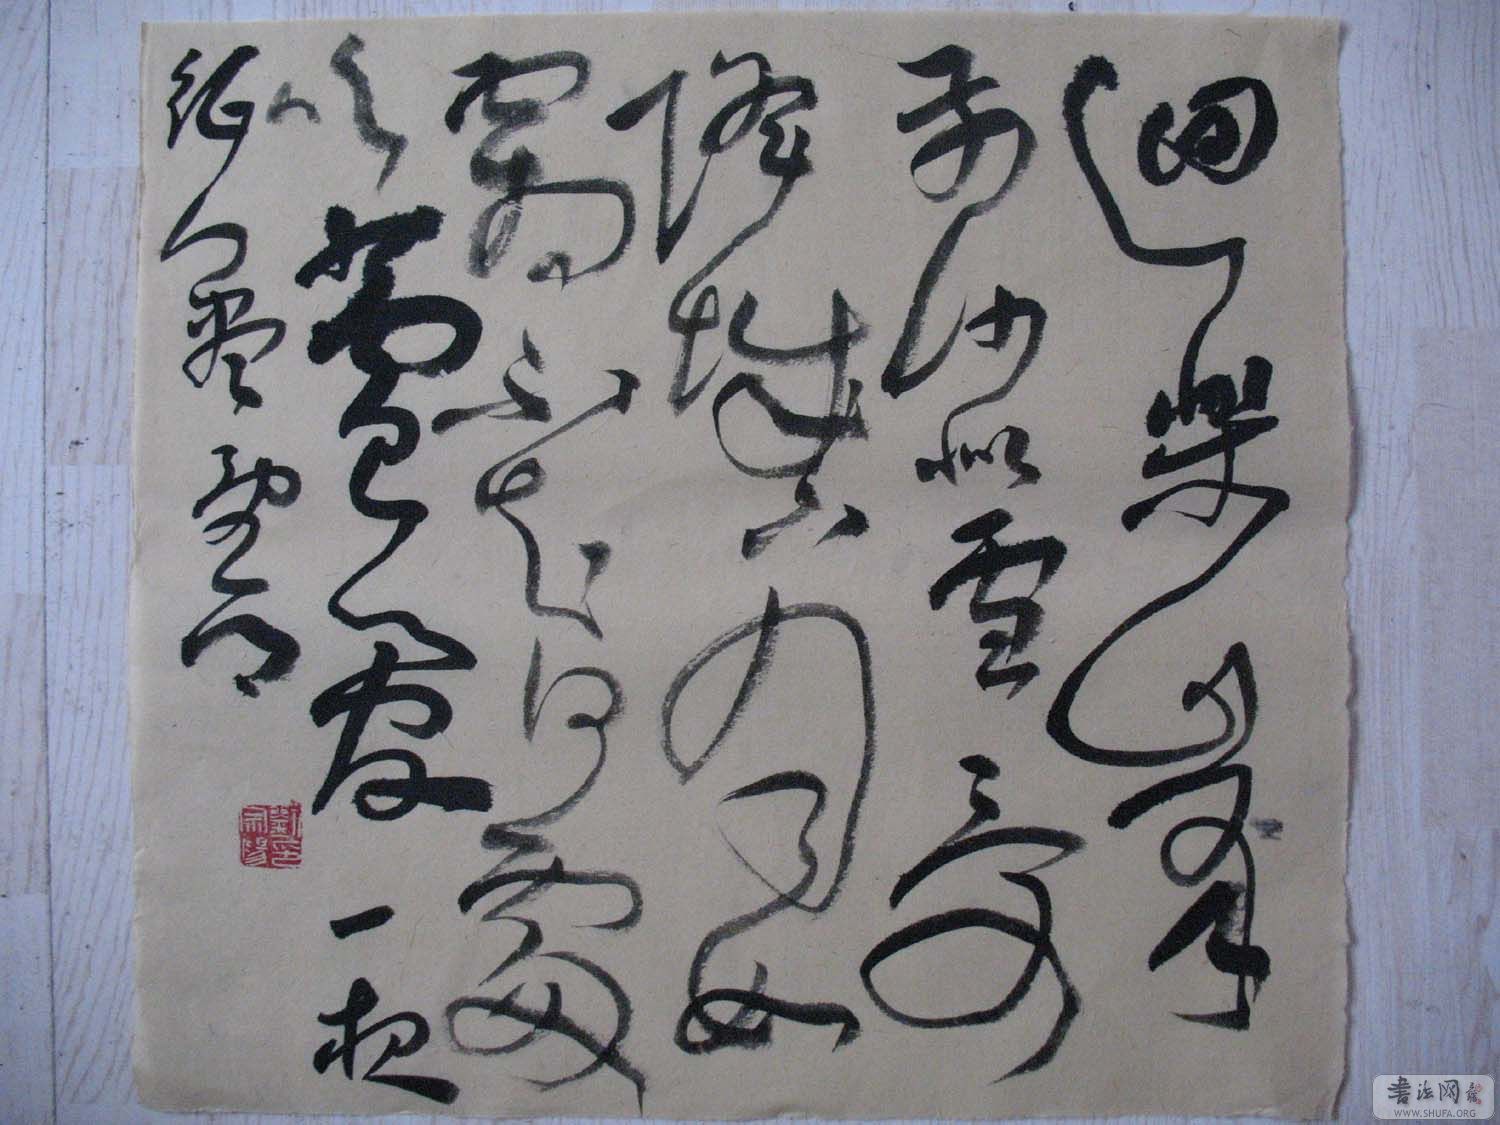 迴樂峯
前沙似雪受
降城外月如
霜不知何處
吹蘆管一夜
征人盡望鄉
书法网
WWW.SHUFA.ORG